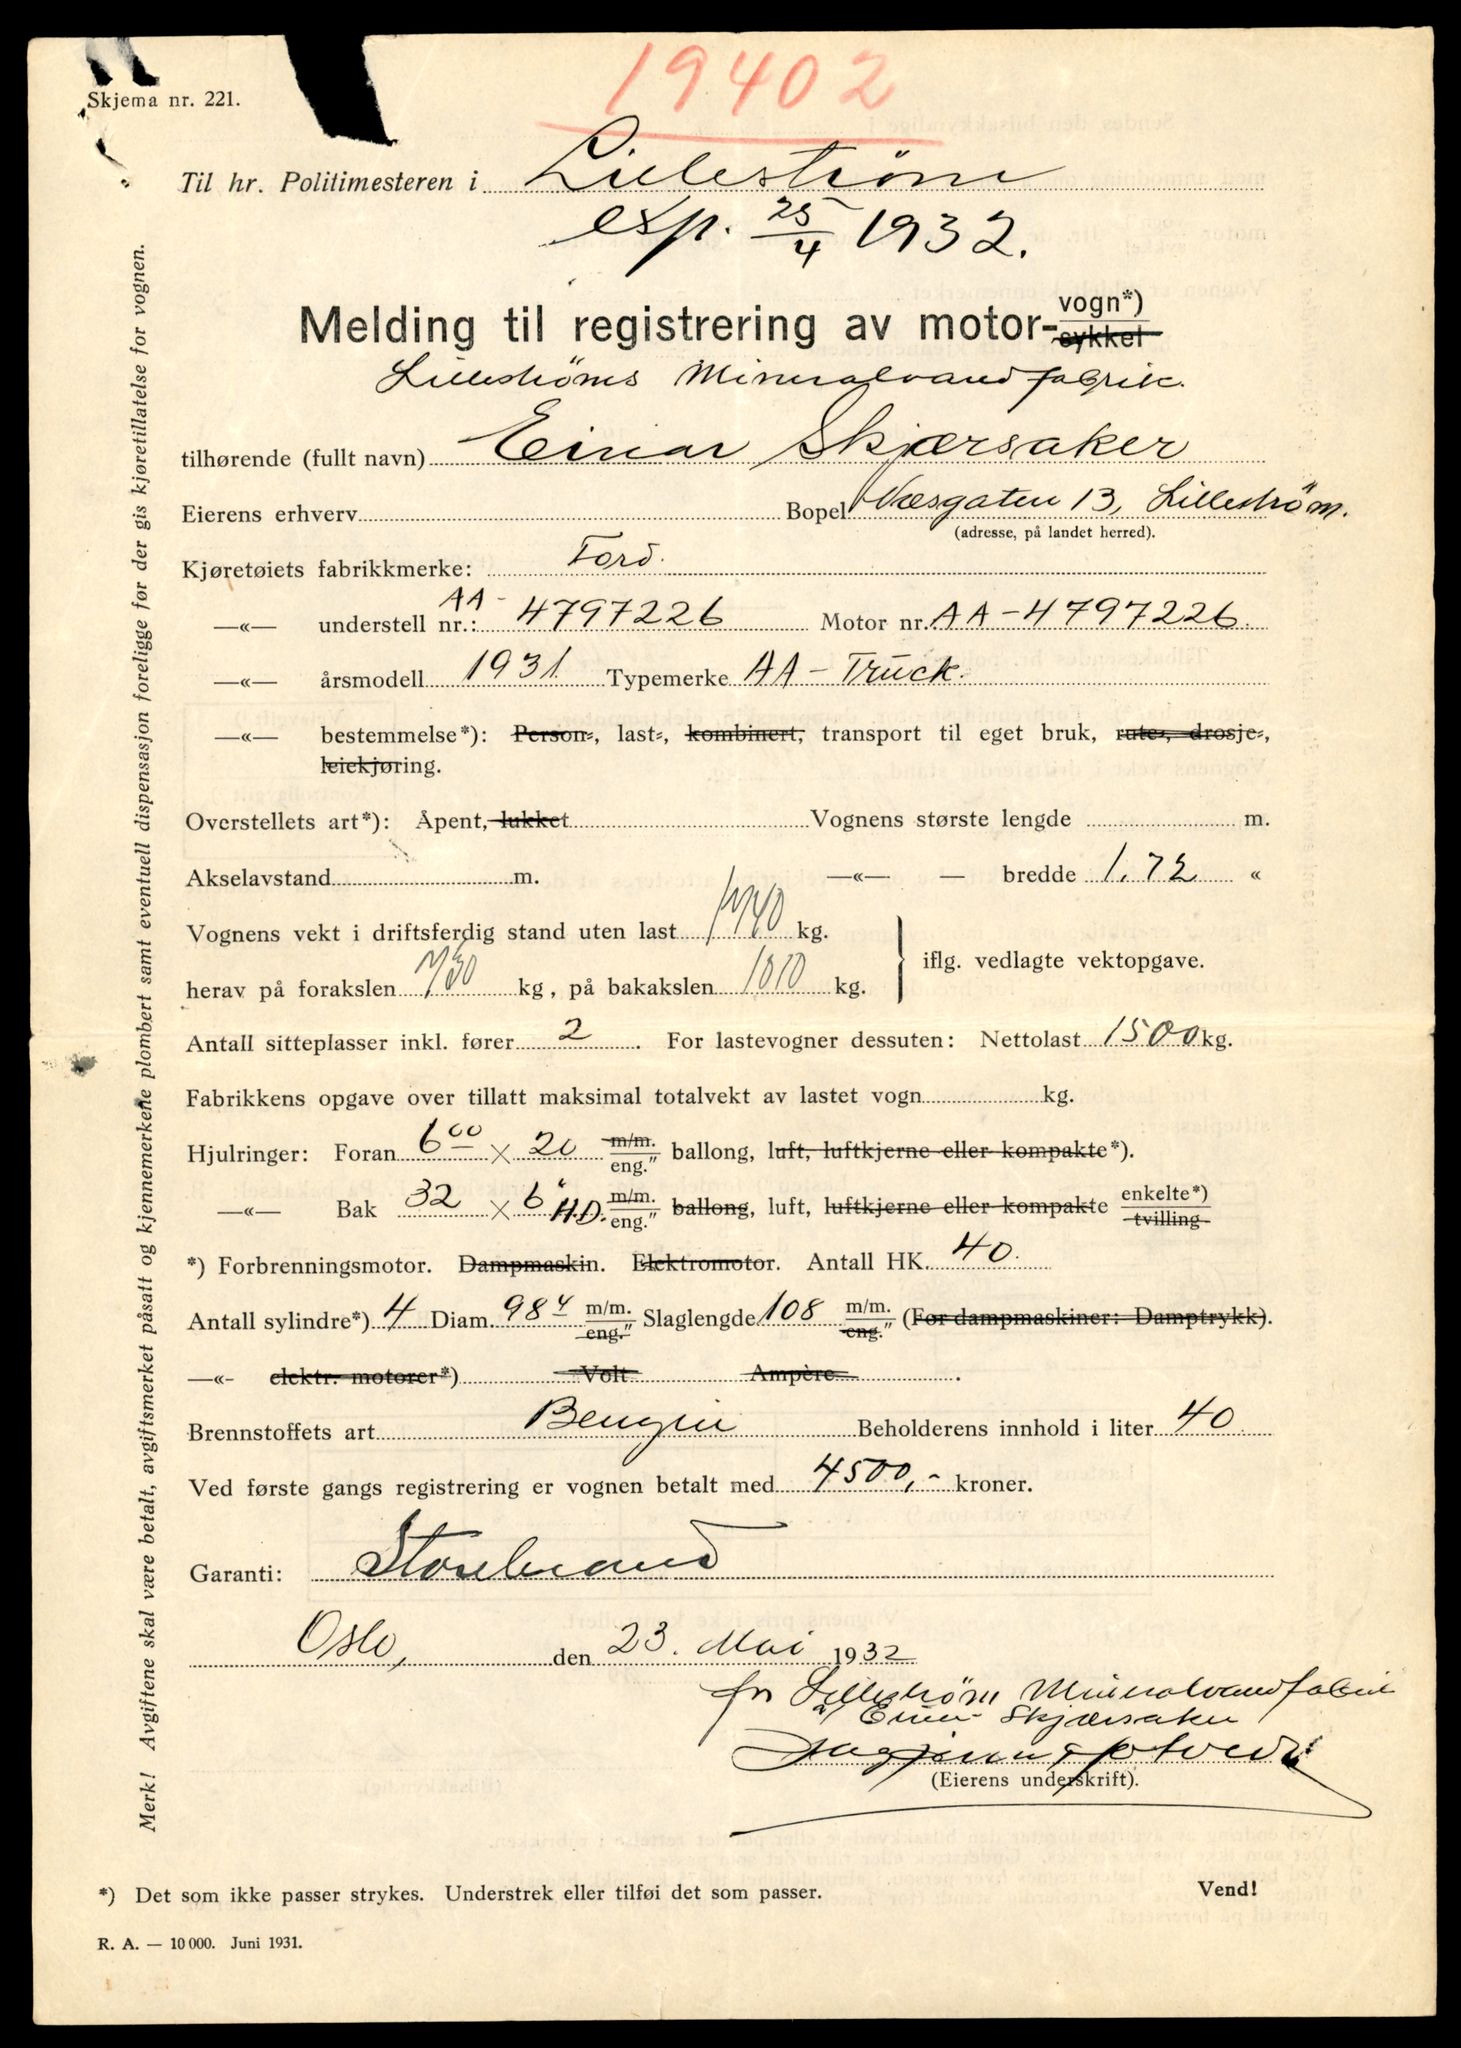 19402
Skjema nr. 221.
Til hr. Politimesteren i Lillestrøm
exp. 25/4 1932.
Melding til registrering av motor- vogn*) sykkel
Lillestrøms Mineralvandfabrik.
tilhørende (fullt navn) Einar Skjærsaker
Eierens erhverv Bopel Næsgaten 13, Lillestrøm.
(adresse, på landet herred).
Kjøretøiets fabrikkmerke: Ford.
—«— understell nr.: AA- 4797226 Motor nr. AA-4797226.
—«— årsmodell 1931. Typemerke AA-Truck.
—«— bestemmelse*): Person-, last-, kombinert, transport til eget bruk, rute-, drosje-,
leiekjøring.
Overstellets art*): Åpent, lukket Vognens største lengde m.
Akselavstand m. —«— — bredde 1,72 «
Vognens vekt i driftsferdig stand uten last 1740 kg.
herav på forakslen 730 kg, på bakakslen 1010 kg. iflg. vedlagte vektopgave.
Antall sitteplasser inkl. fører 2. For lastevogner dessuten: Nettolast 1500 kg.
Fabrikkens opgave over tillatt maksimal totalvekt av lastet vogn kg.
Hjulringer: Foran 6 00 × 20 m/m. eng." ballong, luft, luftkjerne eller kompakte*).
—«— Bak 32 × 6" H.D. m/m. eng." ballong, luft, luftkjerne eller kompakte enkelte*) tvilling
*) Forbrenningsmotor. Dampmaskin. Elektromotor. Antall HK. 40.
Antall sylindre*) 4 Diam. 98 4 m/m. eng." Slaglengde 108 m/m. eng." (For dampmaskiner: Damptrykk).
—«- elektr. motorer*) Volt Ampère.
Brennstoffets art Benzin Beholderens innhold i liter 40
Ved første gangs registrering er vognen betalt med 4500,- kroner.
Garanti: Storebrand
Oslo, den 23. Mai 1932
for Lillestrøm Mineralvandfabrik
Einar Skjærsaker
(Eierens underskrift).
*) Det som ikke passer strykes. Understrek eller tilføi det som passer. Vend!
R. A. — 10 000. Juni 1931.
Merk! Avgiftene skal være betalt, avgiftsmerket påsatt og kjennemerkene plombert samt eventuell dispensasjon foreligge før der gis kjøretillatelse for vognen.